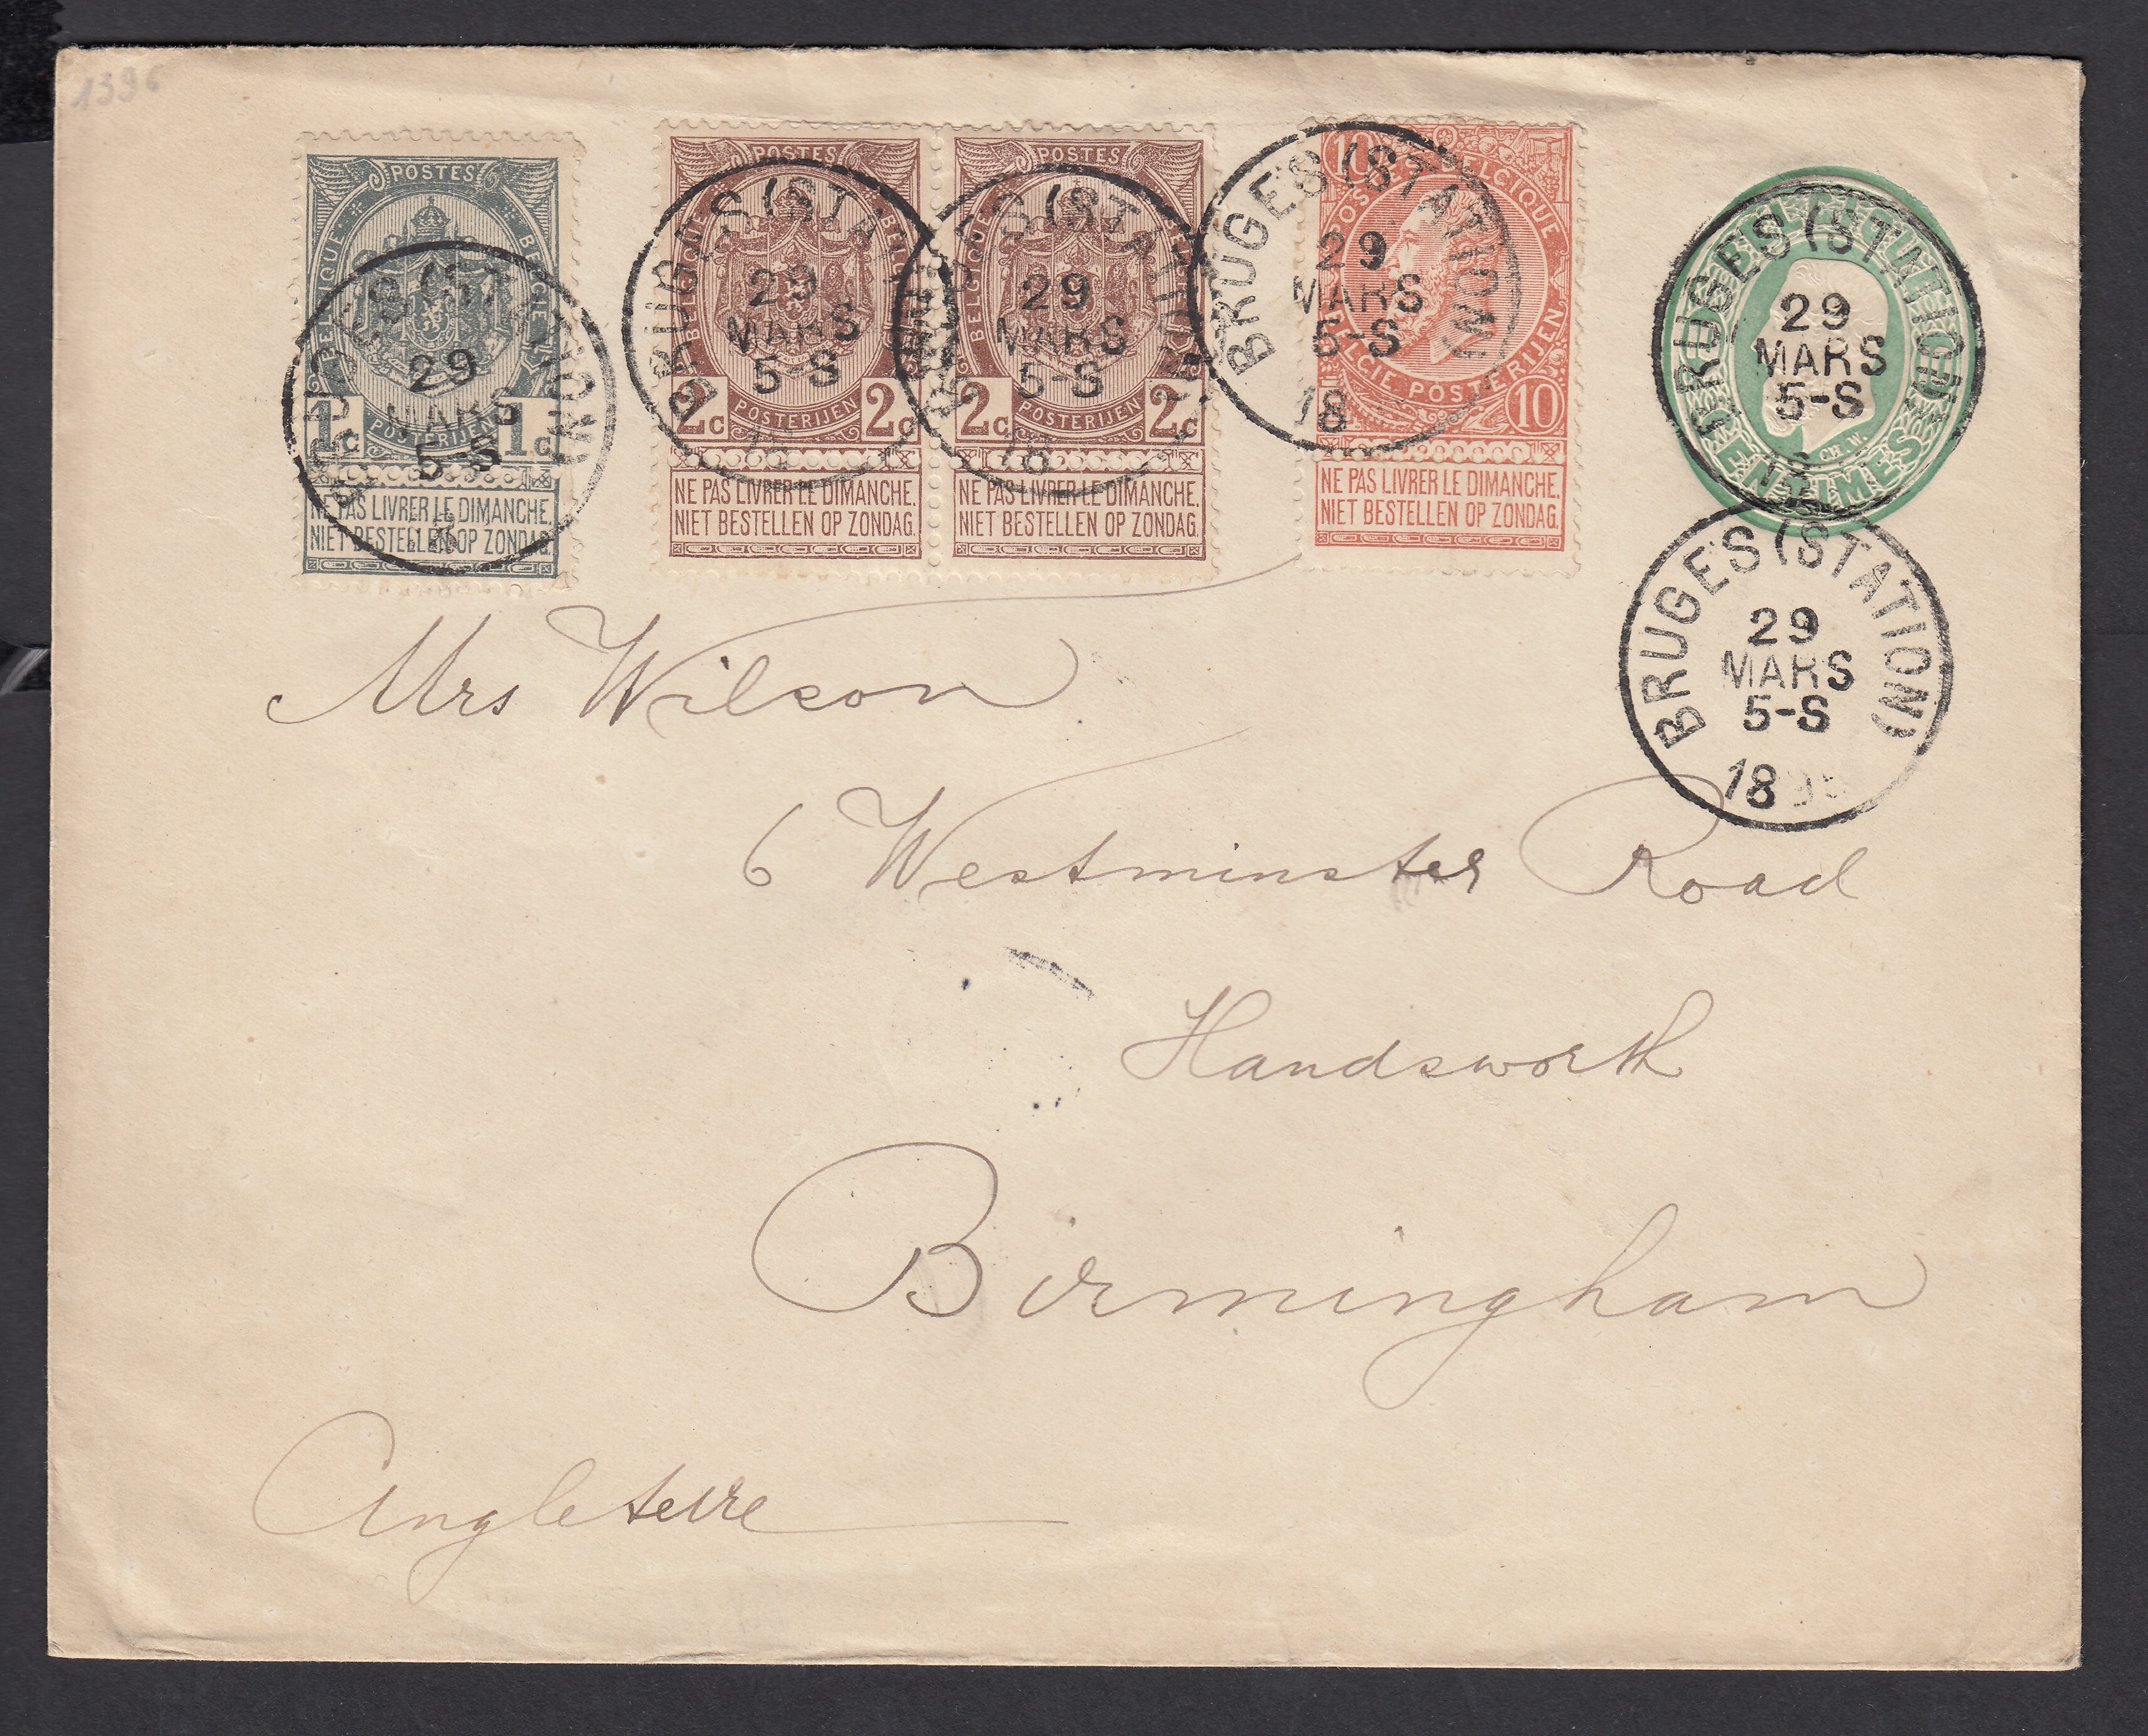 1396
POSTES
BELGIQUE BELGIË
1c POSTERIJEN 1c
NE PAS LIVRER LE DIMANCHE.
NIET BESTELLEN OP ZONDAG.
BRUGES (STATION)
29
MARS
5-S
POSTES
BELGIQUE BELGIË
2c POSTERIJEN 2c
NE PAS LIVRER LE DIMANCHE.
NIET BESTELLEN OP ZONDAG.
BRUGES (STATION)
29
MARS
5-S
POSTES
BELGIQUE BELGIË
2c POSTERIJEN 2c
NE PAS LIVRER LE DIMANCHE.
NIET BESTELLEN OP ZONDAG.
BRUGES (STATION)
29
MARS
5-S
18
10
POSTES BELGIQUE
BELGIE POSTERIJEN
10
NE PAS LIVRER LE DIMANCHE.
NIET BESTELLEN OP ZONDAG.
BRUGES (STATION)
29
MARS
5-S
18
CENTIMES
CH. W.
BRUGES (STATION)
29
MARS
5-S
BRUGES (STATION)
29
MARS
5-S
18
Mrs Wilson
6 Westminster Road
Handsworth
Birmingham
Angleterre